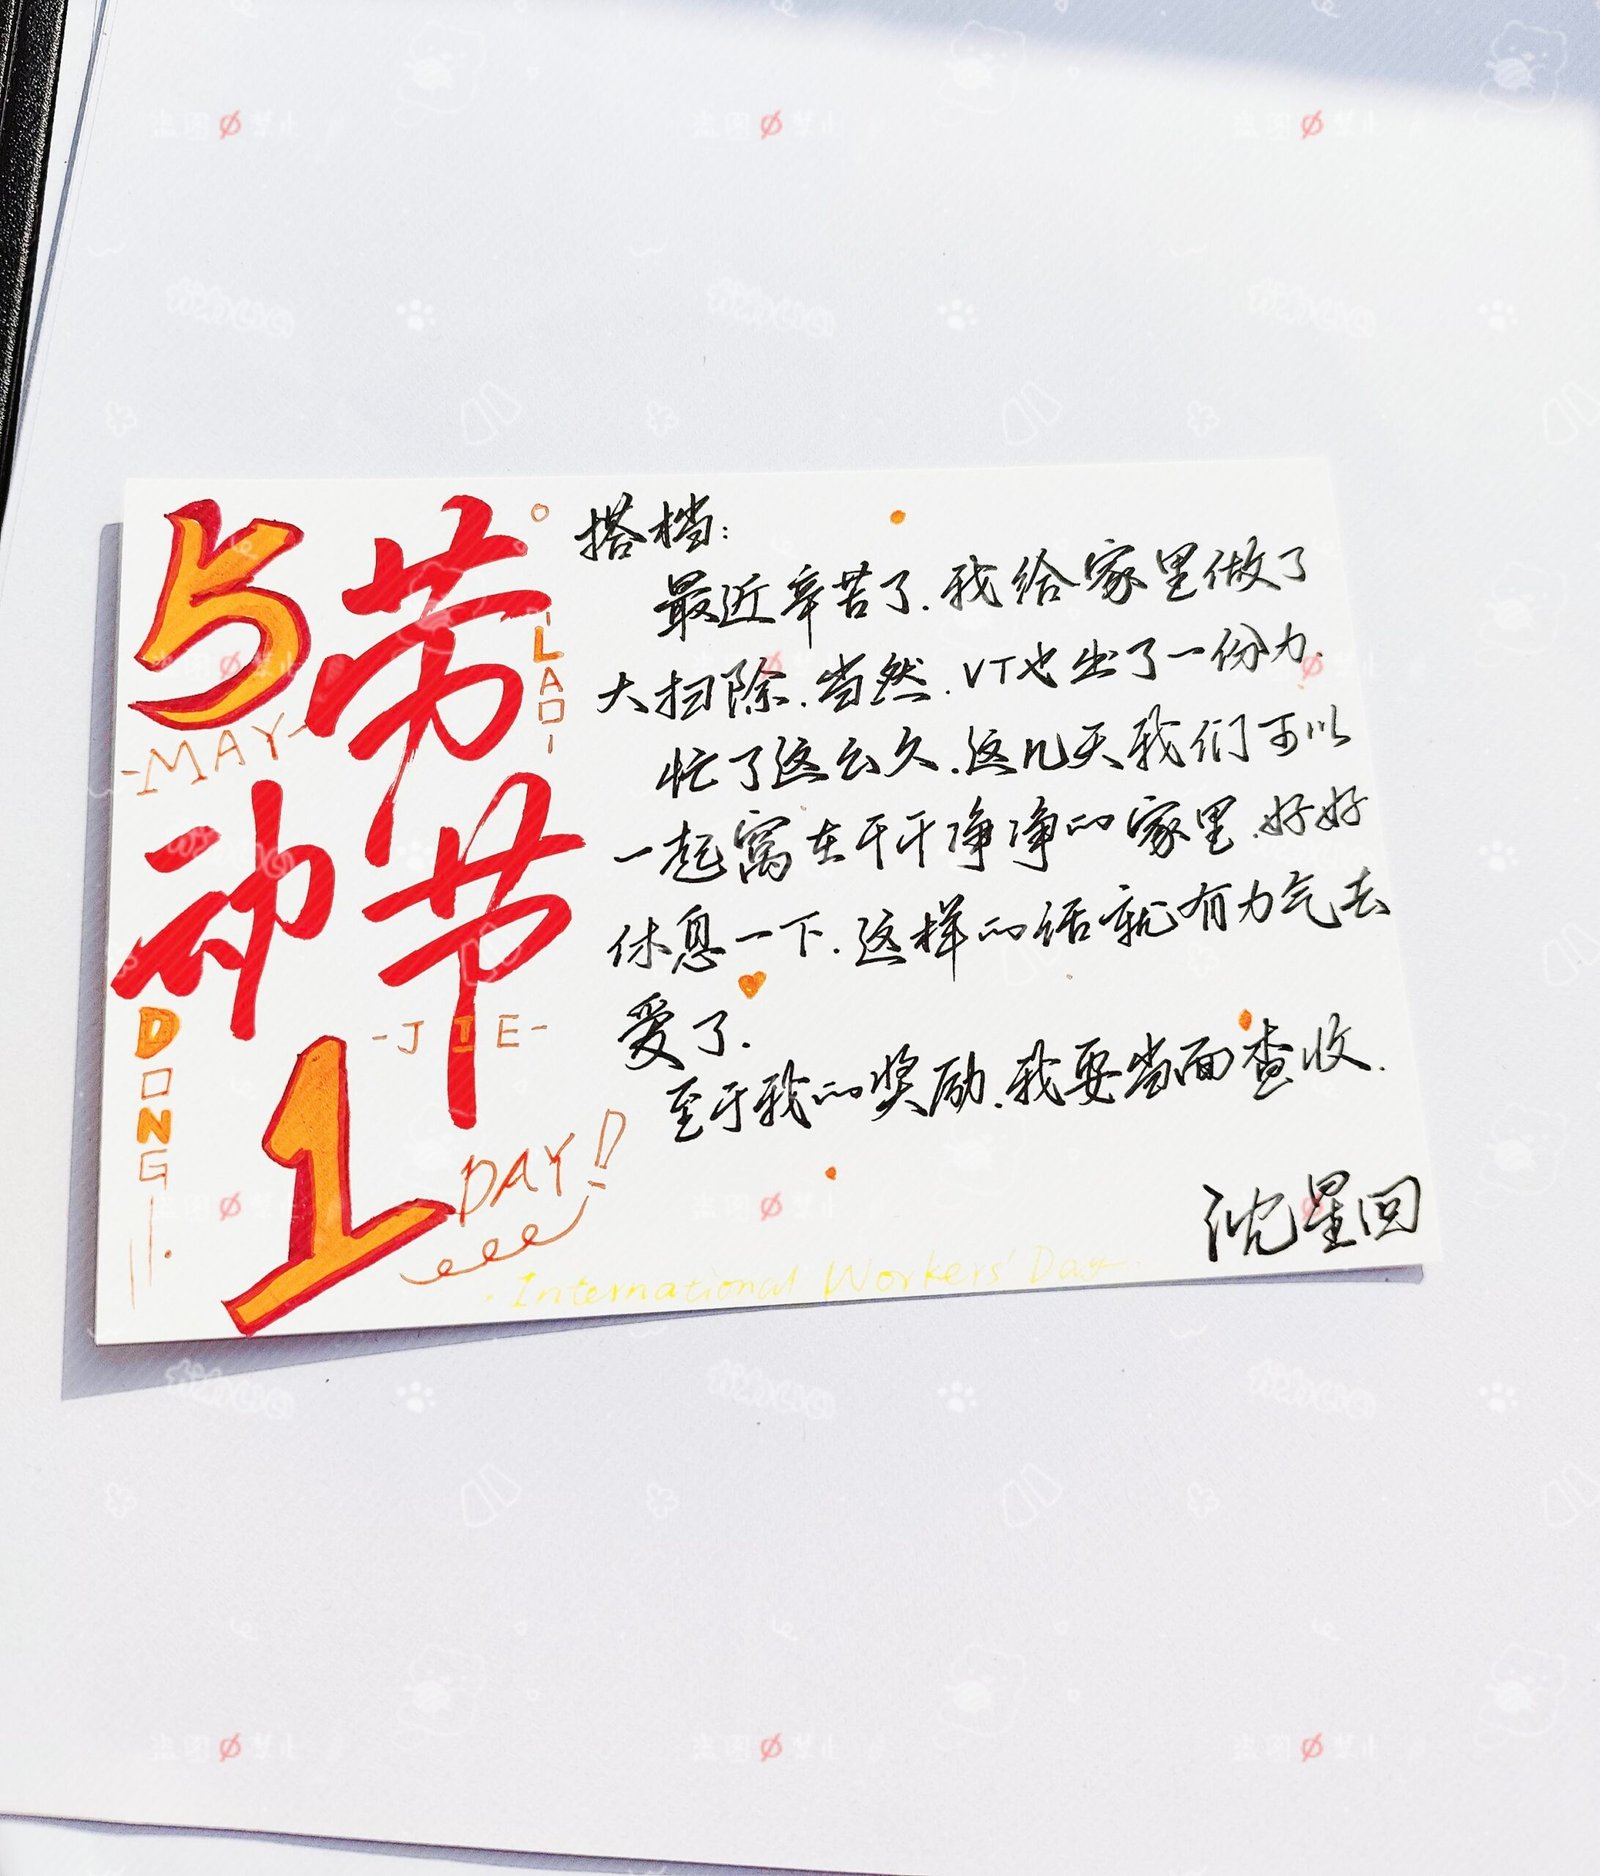 5
劳
LAO
-MAY-
动
节
DONG
-JIE-
1
DAY!
搭档:
最近辛苦了.我给家里做了
大扫除.当然.VT也出了一份力.
忙了这么久.这几天我们可以
一起窝在干干净净的家里.好好
休息一下.这样的话就有力气去
爱了.
至于我的奖励.我要当面查收.
沈星回
International Workers' Day